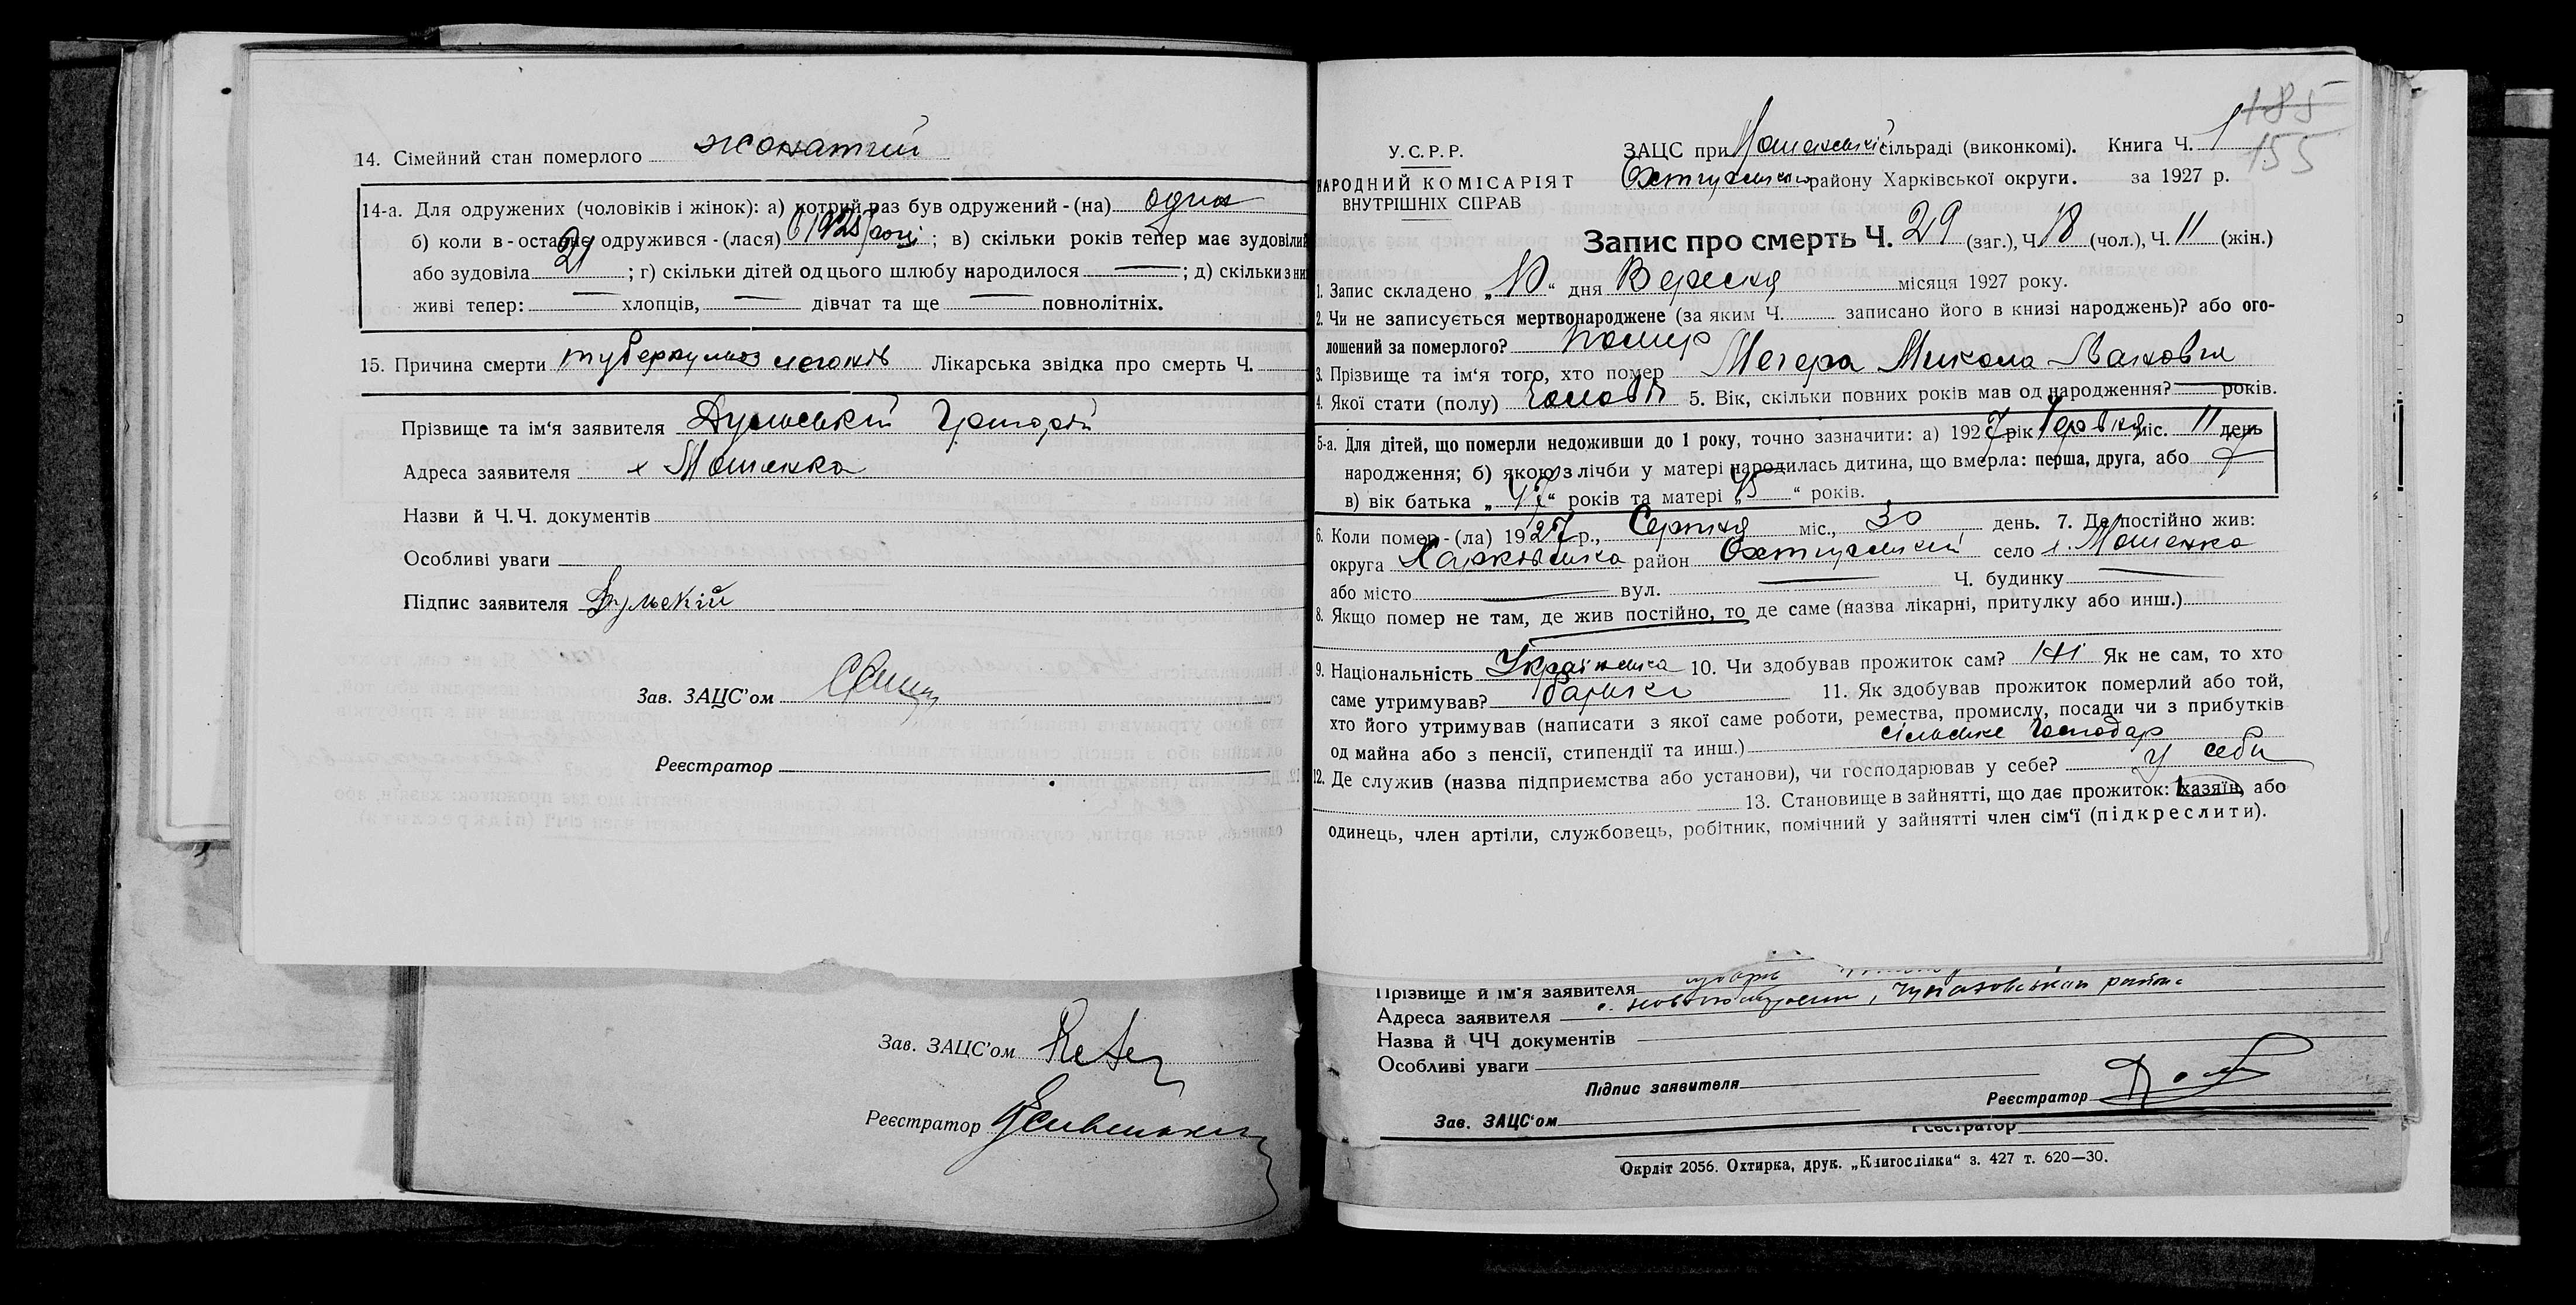 14. Сімейний стан померлого жонатий
14-а. Для одружених (чоловіків і жінок): а) котрий раз був одружений-(на) один
б) коли в-останнє одружився-(лася) в 1925 році; в) скільки років тепер має зудовілий
або зудовіла 21; г) скільки дітей од цього шлюбу народилося —; д) скільки з ни
живі тепер: — хлопців, — дівчат та ще — повнолітніх.
15. Причина смерти туберкульоз легенів Лікарська звідка про смерть Ч.
Прізвище та ім'я заявителя Дульський Григорій
Адреса заявителя х Мошенка
Назви й Ч.Ч. документів
Особливі уваги
Підпис заявителя Дульскій
Зав. ЗАЦС'ом
Реєстратор
Зав. ЗАЦС'ом
Реєстратор
185
155
У.С.Р.Р.
НАРОДНИЙ КОМІСАРІЯТ
ВНУТРІШНІХ СПРАВ
ЗАЦС при сільраді (виконкомі). Книга Ч. 1
Охтирському району Харківської округи. за 1927 р.
Запис про смерть Ч. 29 (заг.), Ч. 18 (чол.), Ч. 11 (жін.)
1. Запис складено „10“ дня Вересня місяця 1927 року.
2. Чи не записується мертвонароджене (за яким Ч. записано його в книзі народжень)? або ого-
лошений за померлого? помер
3. Прізвище та ім'я того, хто помер Мегера Микола Іванович
4. Якої стати (полу) чолов. 5. Вік, скільки повних років мав од народження? — років.
5-а. Для дітей, що померли недоживши до 1 року, точно зазначити: а) 1927 рік Червня міс. 11 день
народження; б) якою з лічби у матері народилась дитина, що вмерла: перша, друга, або 7
в) вік батька „47“ років та матері „45“ років.
6. Коли помер-(ла) 1927 р., Серпня міс., 30 день. 7. Де постійно жив:
округа Харківська район Охтирський село х. Мошенка
або місто — вул. — Ч. будинку —
8. Якщо помер не там, де жив постійно, то де саме (назва лікарні, притулку або инш.)
9. Національність Українська 10. Чи здобував прожиток сам? ні Як не сам, то хто
саме утримував? батьки 11. Як здобував прожиток померлий або той,
хто його утримував (написати з якої саме роботи, ремества, промислу, посади чи з прибутків
од майна або з пенсії, стипендії та инш.) сільське господар
12. Де служив (назва підприємства або установи), чи господарював у себе? у себе
13. Становище в зайнятті, що дає прожиток: хазяїн, або
одинець, член артіли, службовець, робітник, помічний у зайнятті член сім'ї (підкреслити).
Прізвище й ім'я заявителя
Адреса заявителя району
Назва й ЧЧ документів
Особливі уваги
Підпис заявителя
Реєстратор
Зав. ЗАЦС'ом
Реєстратор
Окрліт 2056. Охтирка, друк. „Книгоспілки“ з. 427 т. 620—30.